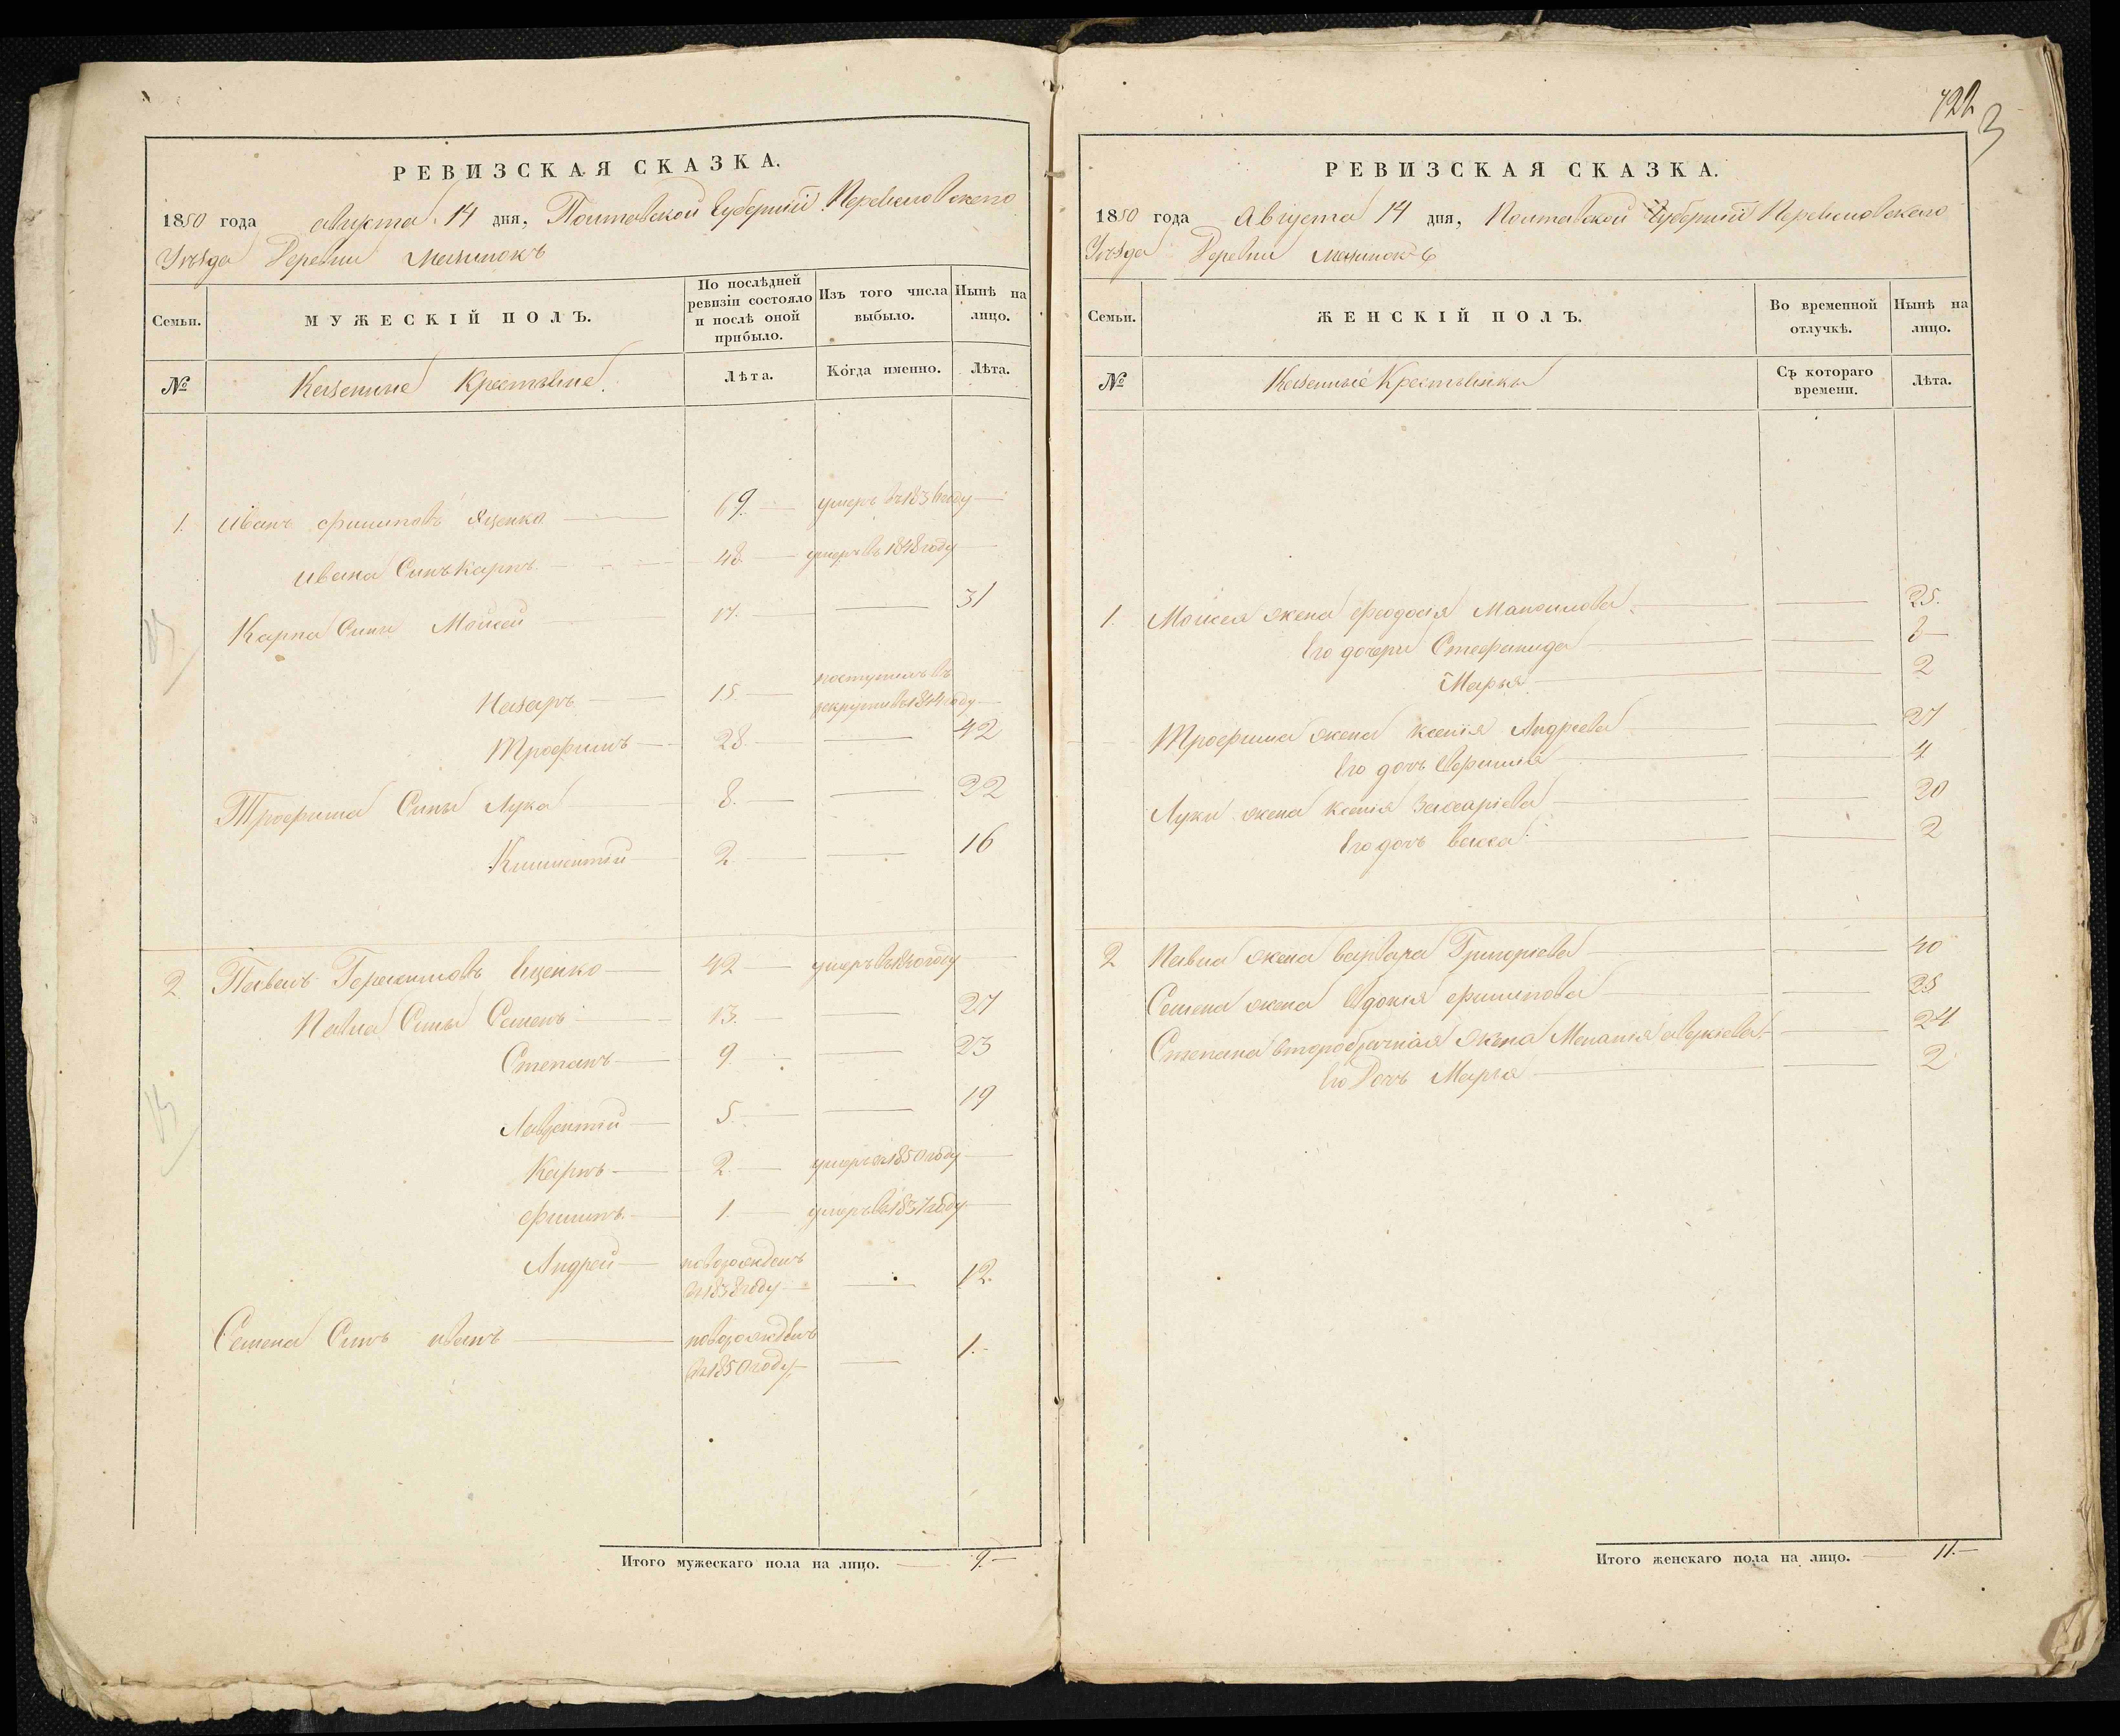 РЕВИЗСКАЯ СКАЗКА.
1850 года августа 14 дня, Полтавской Губерніи Переяславскаго
Уѣзда Деревни
Семьи.
МУЖЕСКІЙ ПОЛЪ.
По послѣдней ревизіи состояло и послѣ оной прибыло.
Изъ того числа выбыло.
Нынѣ на лицо.
№
Казенные Крестьяне.
Лѣта.
Когда именно.
Лѣта.
1. Иванъ Филиповъ Яценко 69. умеръ въ 1836 году
Ивана Сынъ Карпъ 48 умеръ въ 1848 году
Карпа Сыны Мойсей 17. 31
Назаръ 15. поступилъ въ
рекруты въ 1844 году
Трофимъ 28 42
Трофима Сыны Лука 8. 22
Климентій 2. 16
2. Павелъ Герасимовъ Яценко 42 умеръ въ 1840 году
Павла Сыны Семенъ 13. 27
Степанъ 9. 23
Лаврентій 5. 19
Карпъ 2. умеръ въ 1850 году
Филипъ 1. умеръ въ 1837 году
Андрей новорожденъ
въ 1838 году 12.
Семена Сынъ Иванъ новорожденъ
въ 1850 году 1.
Итого мужескаго пола на лицо. 9.
722
3
РЕВИЗСКАЯ СКАЗКА.
1850 года Августа 14 дня, Полтавской Губерніи Переяславскаго
Уѣзда Деревни
Семьи.
ЖЕНСКІЙ ПОЛЪ.
Во временной отлучкѣ.
Нынѣ на лицо.
№
Казенные Крестьянки
Съ котораго времени.
Лѣта.
1. Мойсея жена Феодосія Мануилова 25.
Его дочери Стефанида
Марья 2
Трофима жена Ксенія Андреева 27
Его дочь Евфимія 4
Луки жена Ксенія Захаріева 20
Его дочь Васса 2
2 Павла жена Варвара Григоріева 40
Семена жена Евдокія Филипова 25
Степана второбрачная жена Меланія 24
Его Дочь Марія 2
Итого женскаго пола на лицо. 11.